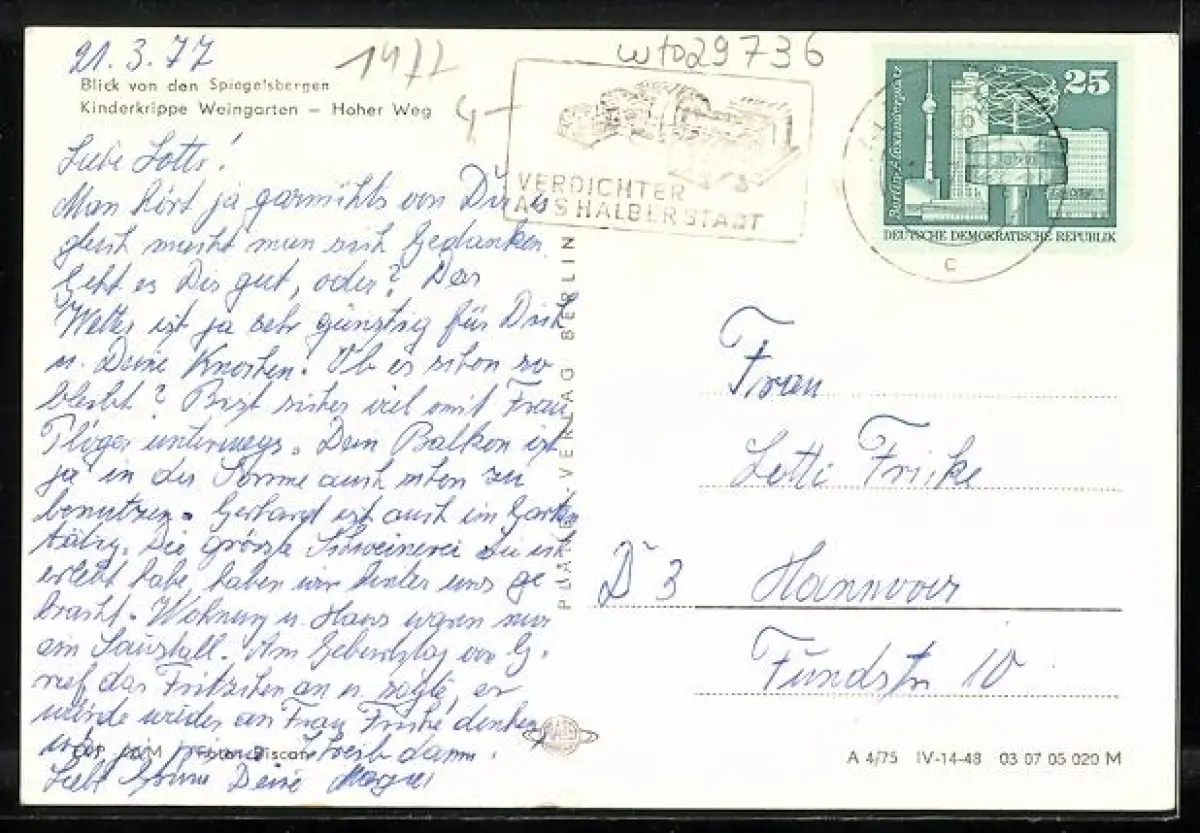 21.3.77
1477
wto29736
Blick von den Spiegelsbergen
Kinderkrippe Weingarten – Hoher Weg
VERDICHTER
AUS HALBERSTADT
Berlin-Alexanderplatz
25
DEUTSCHE DEMOKRATISCHE REPUBLIK
C
Liebe Lotti!
Man hört ja garnichts von Dir u.
gleich macht man sich Gedanken.
Geht es Dir gut, oder? Das
Wetter ist ja sehr günstig für Dich
u. Deine Knochen. Ob es schon so
bleibt? Bist sicher viel mit Frau
Plöger unterwegs. Dein Balkon ist
ja in der Sonne auch schon zu
benutzen. Gerhard ist auch im Garten
tätig. Die grösste Schweinerei die ich
erlebt habe, haben wir hinter uns ge
bracht. Wohnung u. Haus waren nur
ein Saustall. Am Geburtstag von G.
rief das Fritzchen an u. sagte, er
würde wieder an Frau Fricke denken
Schreib dann.
Liebe Grüsse Deine
PLANET-VERLAG BERLIN
Frau
Lotti Fricke
D 3 Hannover
Fundstr 10
A 4/75 IV-14-48 03 07 05 020 M